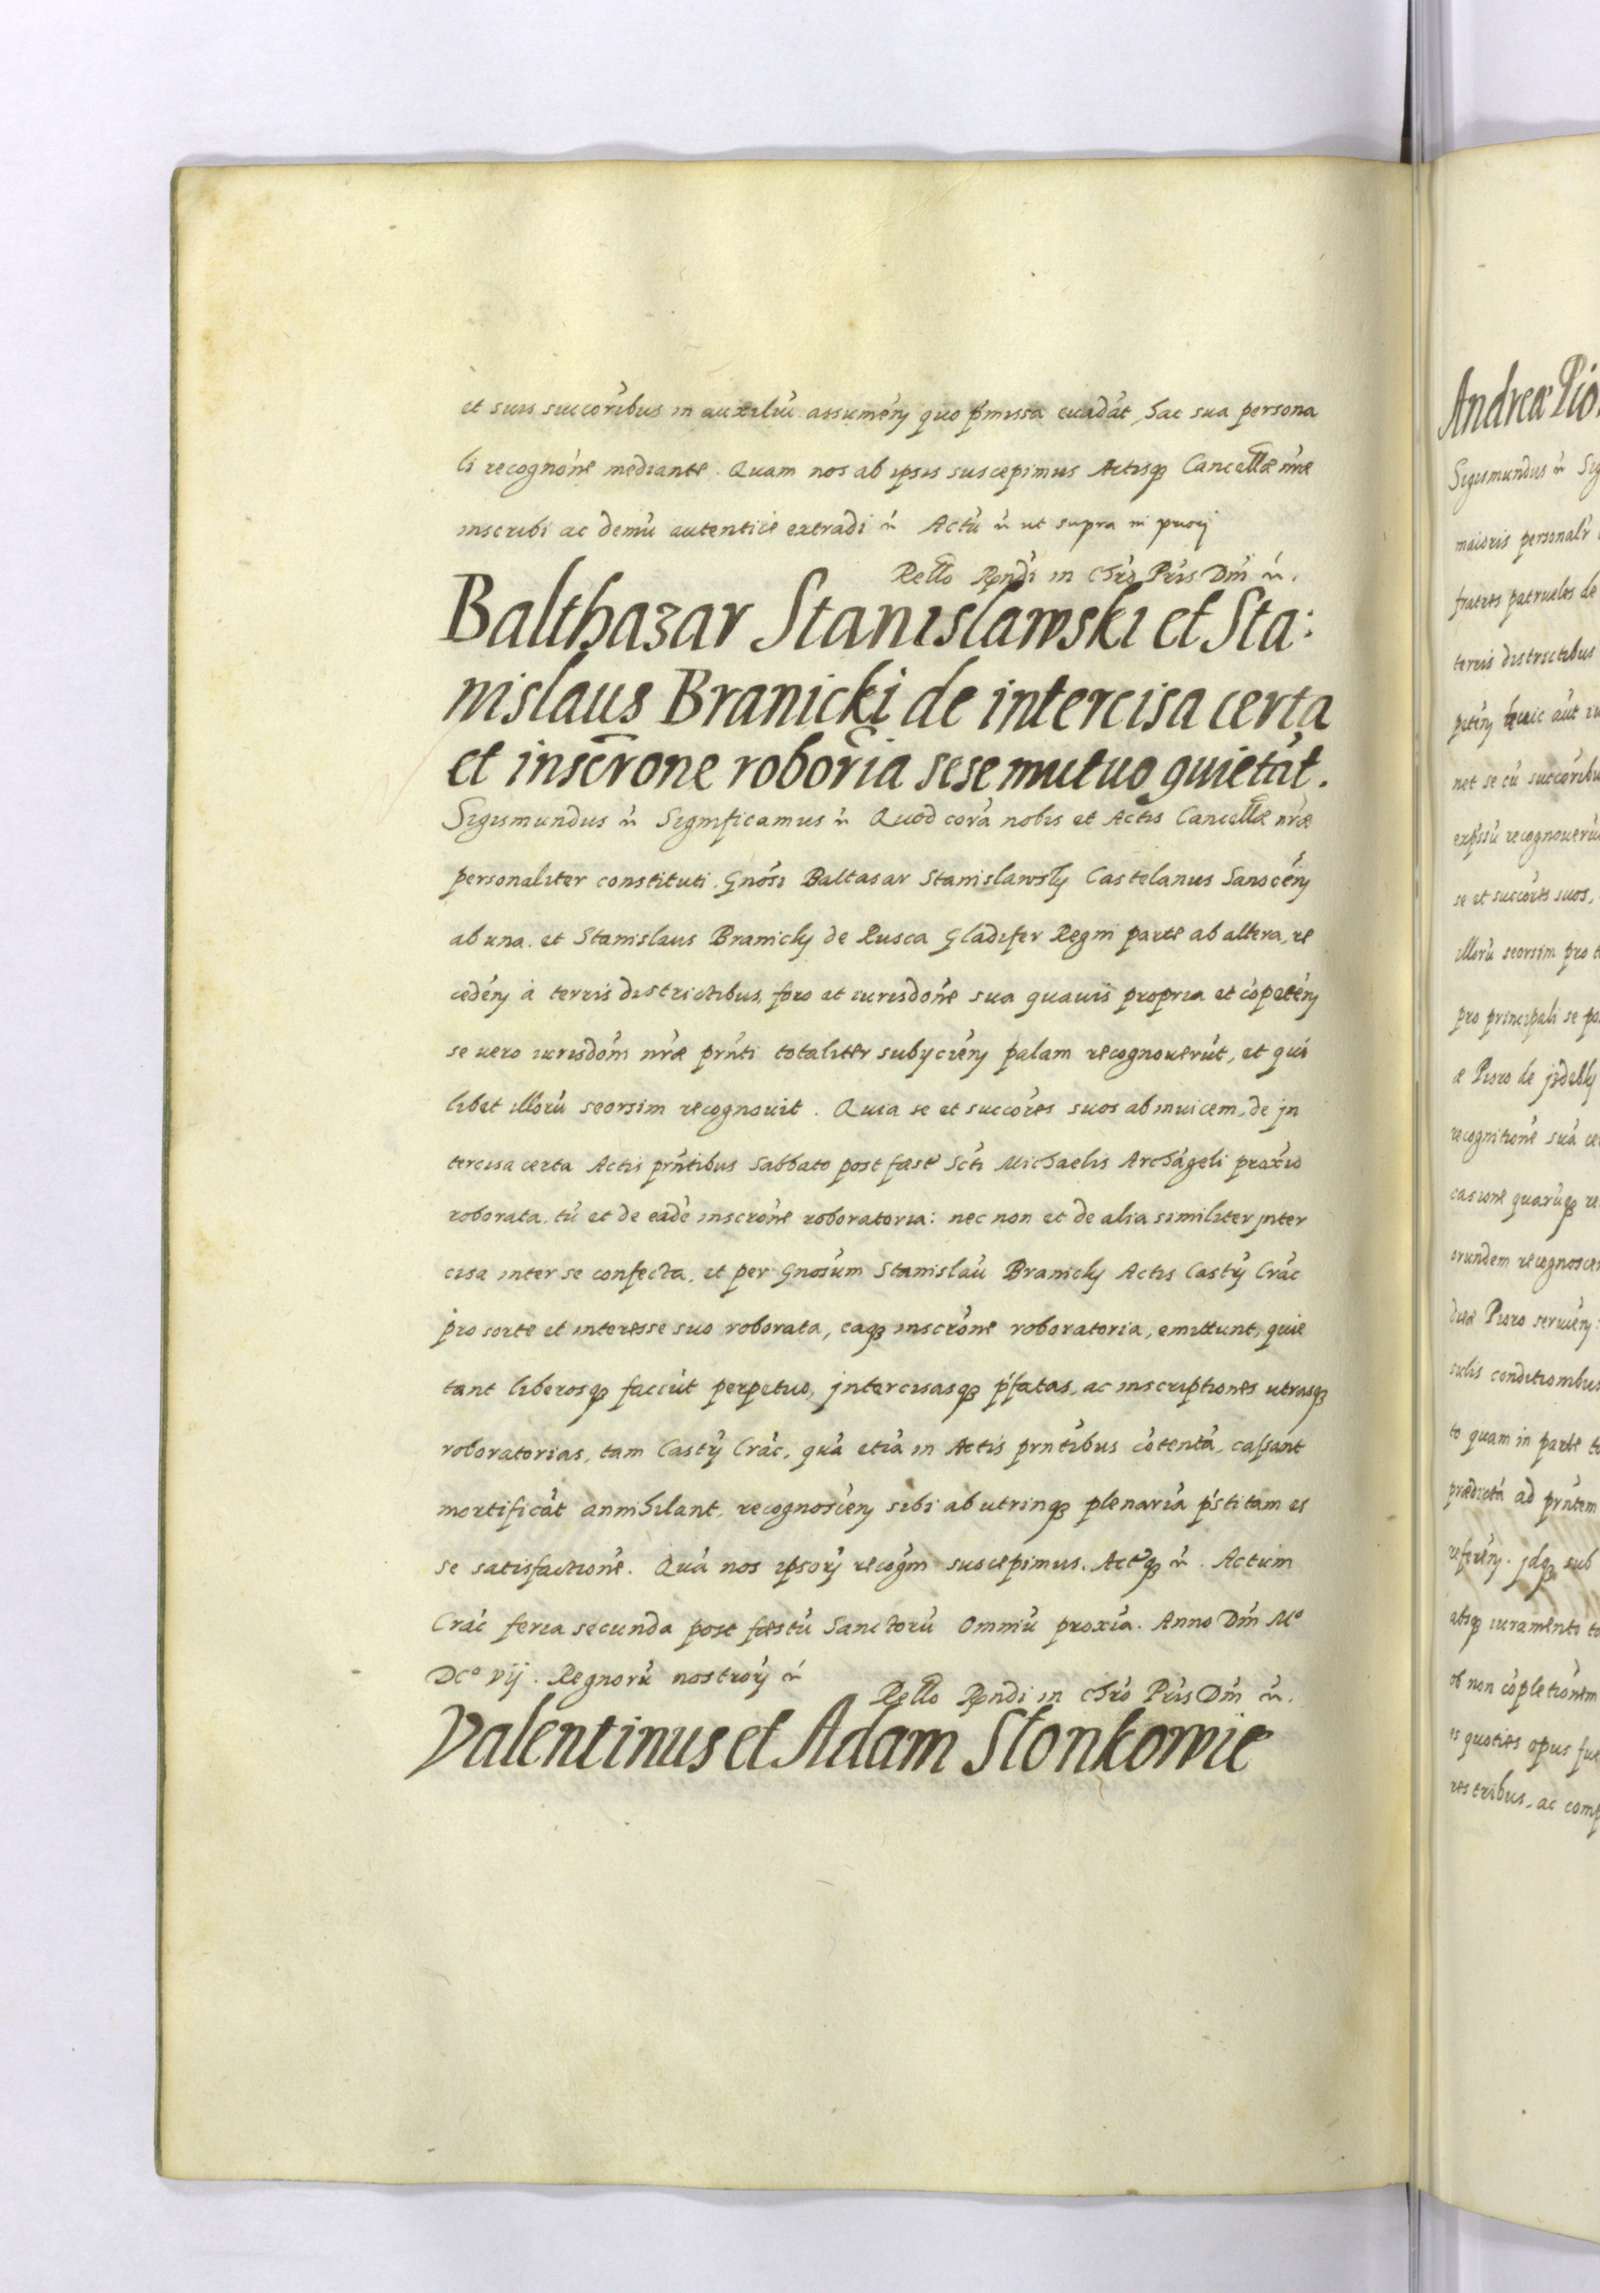 et suis succoribus in auxiliu assumen quo pmissa euadat, hac sua persona
li recognone mediante. Quam nos ab ipsis suscepimus Actisq Cancellæ nræ
inscribi ac demu autentice extradi Actu ut supra
Rello Rndi in Chro Pris Dni
Balthazar Stanislawski et Sta:
nislaus Branicki de intercisa certa
et inscrone roboria sese mutuo quietat.
Sigismundus Significamus Quod cora nobis et Actis Cancellæ nræ
personaliter constituti Gnosi Baltasar Stanislawsky Castelanus Sanocen
ab una. et Stanislaus Branicky de Rusca Gladifer Regni parte ab altera, re
ceden à terris districtibus, foro et iurisdone sua quauis propria et copeten
se uero iurisdoni nræ prnti totaliter subycien palam recognouerut, et qui
libet illoru seorsim recognouit. Quia se et succores suos ab inuicem, de jn
tercisa certa Actis prntibus Sabbato post fæst Scti Michaelis Archageli proxio
roborata. tu et de eade inscrone roboratoria: nec non et de alia similiter jnter
cisa inter se confecta, et per Gnosum Stanislau Branicky Actis Casty Crac
pro sorte et interesse suo roborata, eaq inscrone roboratoria, emittunt, quie
tant liberosq faciut perpetuo, jntercisasq pfatas, ac inscriptiones utrasq
roboratorias, tam Casty Crac, qua etia in Actis prntibus cotenta, cassant
mortificat annihilant, recognoscen sibi ab utrinq plenaria pstitam es
se satisfactione. Qua nos ipsory recogm suscepimus. Actq. Actum
Crac feria secunda post fæstu Sanctoru Omniu proxia. Anno Dni M°
DC° vij. Regnoru nostrory
Rello Rndi in Chro Pris Dni
Valentinus et Adam Slonkowie
Andreæ Pio
Sigismundus Sig
maioris personalr
fratres patrueles de
terris districtibus
net se cu succoribu
expssu recognoueru
se et succores suos,
illoru seorsim pro
pro principali se
recognitione sua
casione quaruq re
orundem recognoscen
dicæ Pioro seruien
to quam in parte
prædicta ad prntem
referen. jdq sub
absq iuramenti
ob non copletionem
es quoties opus fue
restribus, ac comp